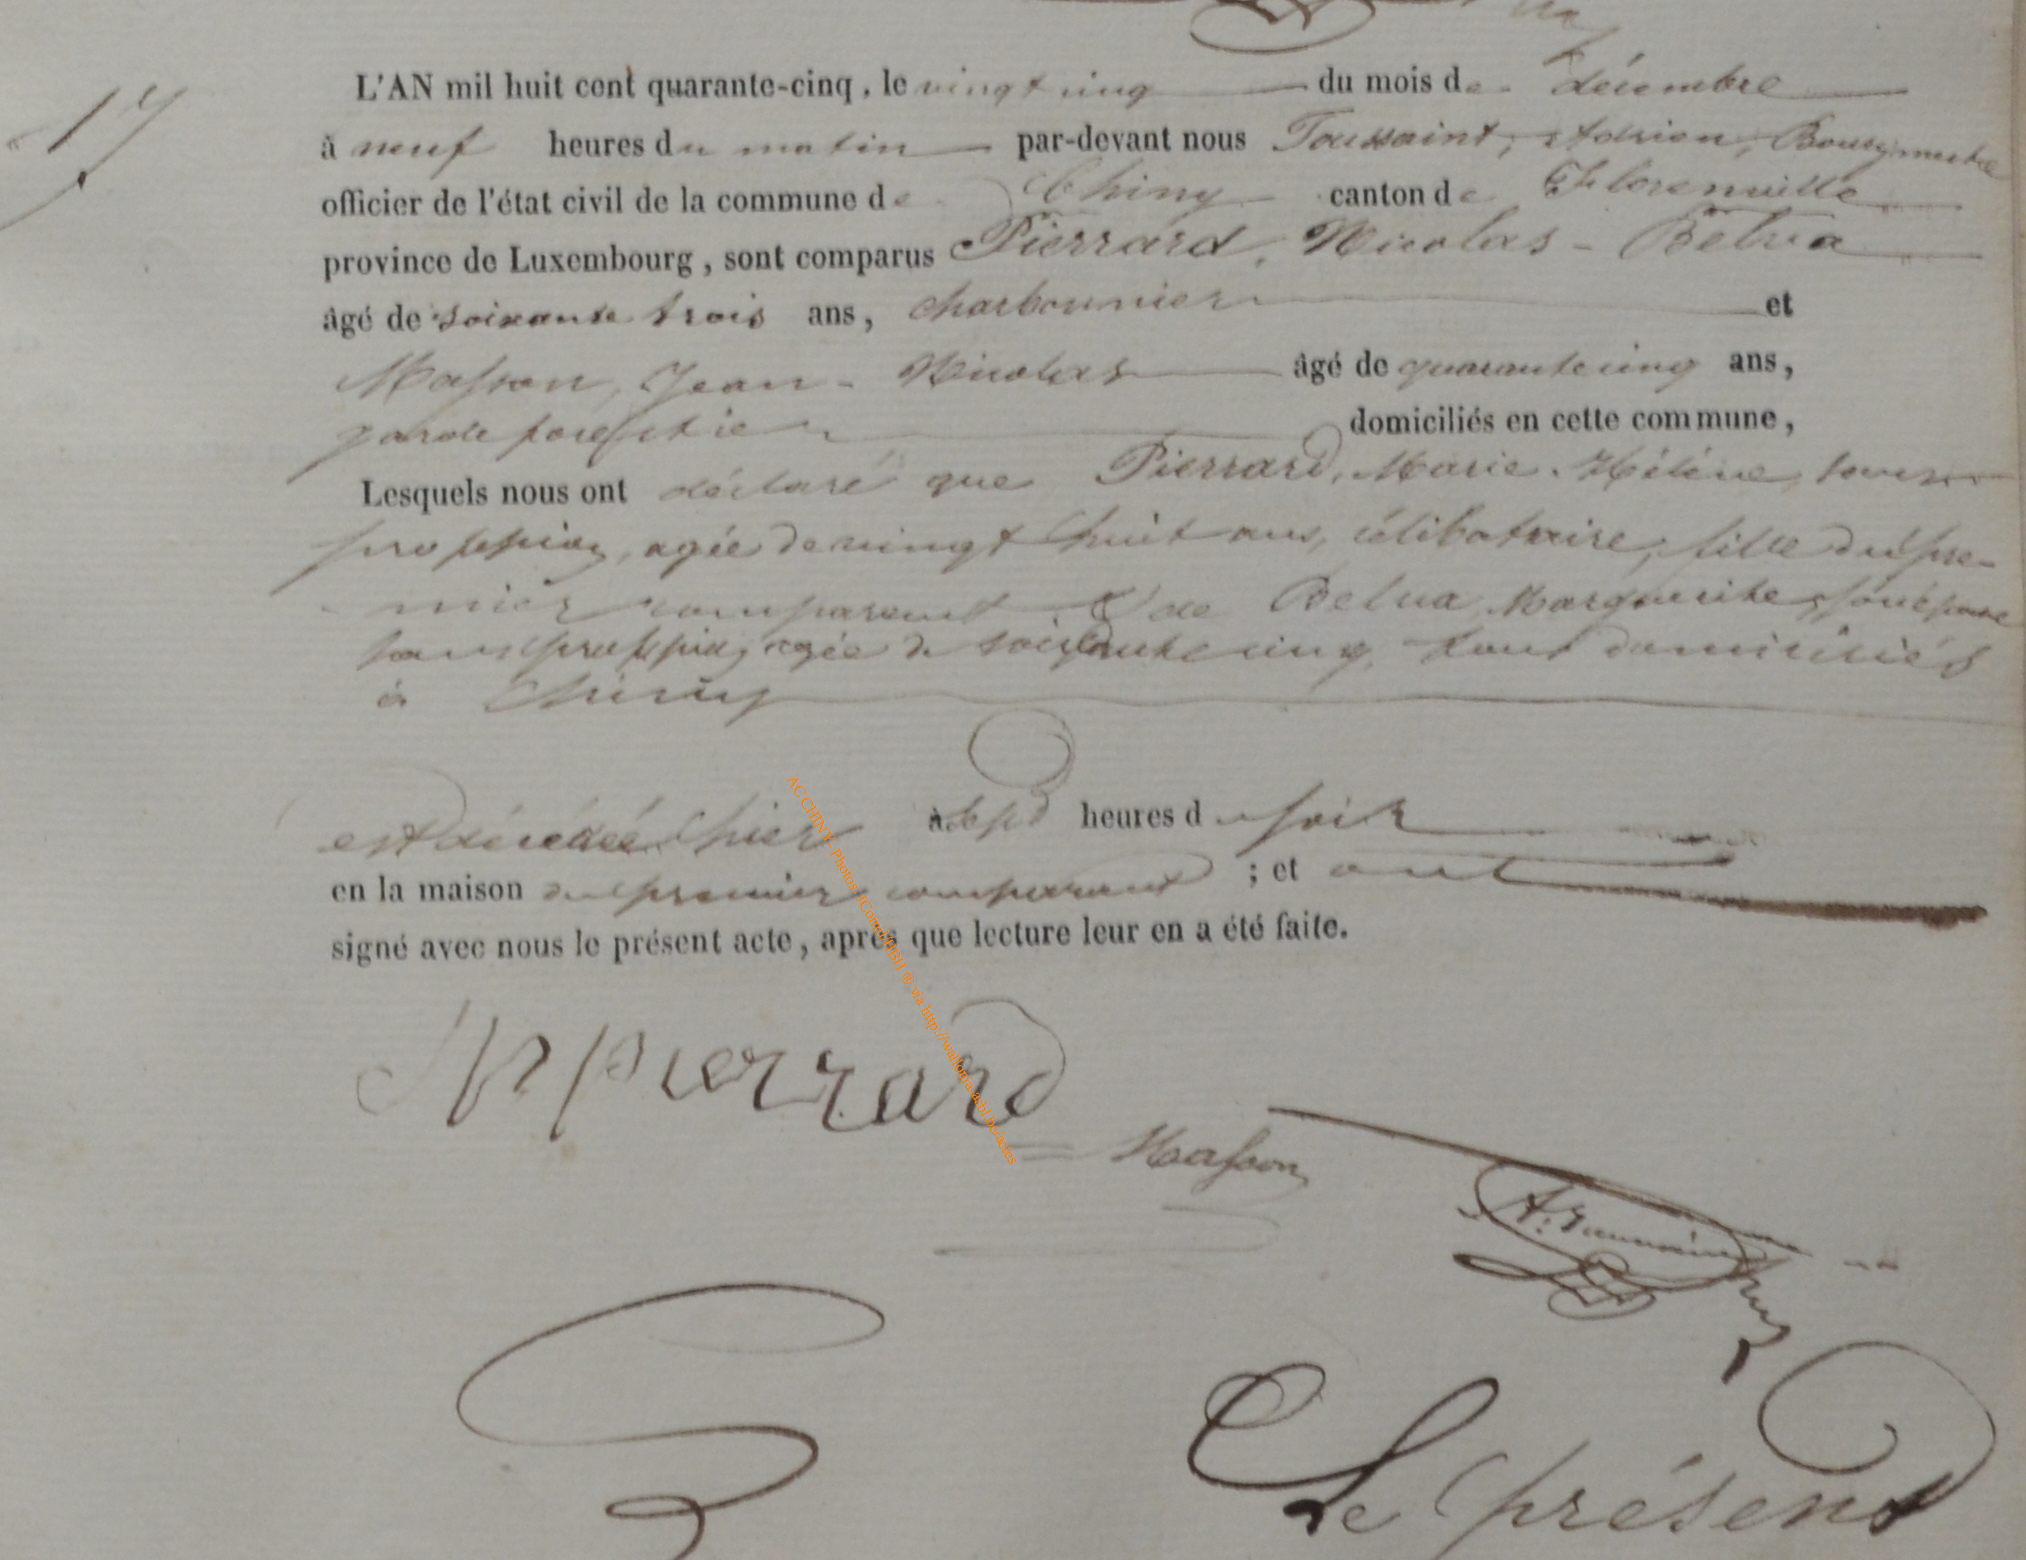 17
L'AN mil huit cent quarante-cinq, le vingt cinq du mois de décembre
à neuf heures du matin par-devant nous Toussaint, Adrien, Bourgmestre
officier de l'état civil de la commune de Chiny canton de Florenville
province de Luxembourg, sont comparus Pierrard, Nicolas - Belva
âgé de soixante trois ans, charbonnier et
Masson, Jean - Nicolas âgé de quarante cinq ans,
garde forestier domiciliés en cette commune,
Lesquels nous ont déclaré que Pierrard, Marie. Hélène, sans
profession, agée de vingt huit ans, célibataire, fille du pre-
mier comparant & de Belva, Marguerite, son épouse
sans profession, agée de soixante cinq, tous domiciliés
à Chiny
est décédée hier à sept heures du soir
en la maison du premier comparant ; et ont
signé avec nous le présent acte, après que lecture leur en a été faite.
N Pierrard
Masson
A. Toussaint
Le présent
AC CHINY - Photos
via http://